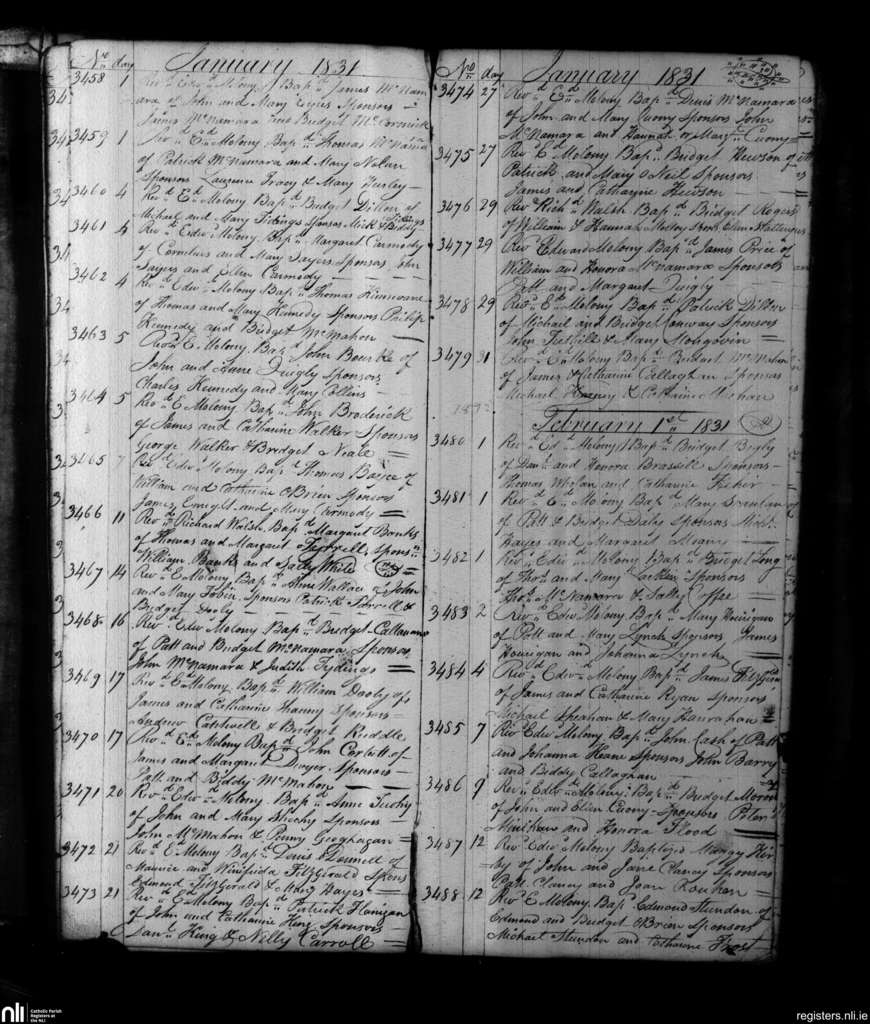 No day January 1831
3458 1 Revd Edwd Molony Bapd James McNam
ara of John and Mary Sponsors
James McNamara and Bridget McCormick
3459 1 Revd Ed Molony Bapd Thomas McNama
of Patrick McNamara and Mary Nolan
Sponsors Laurence Tracy & Mary Hurley
3460 4 Revd Ed Molony Bapd Bridget Dillon of
Michael and Mary Sponsors Mick & Biddy
3461 4 Revd Edwd Molony Bapd Margaret Carmody
of Cornelius and Mary Sayers Sponsors John
Sayers and Ellen Carmody
3462 4 Revd Edwd Molony Bapd Thomas Kinnvane
of Thomas and Mary Kennedy Sponsors Philip
Kennedy and Bridget McMahon
3463 5 Revd E Molony Bapd John Bourke of
John and Anne Quigly Sponsors
Charles Kennedy and Mary Collins
3464 5 Revd E Molony Bapd John Broderick
of James and Catharine Walker Sponsors
George Walker & Bridget Neale
3465 7 Revd Edwd Molony Bapd Thomas of
William and Catharine OBrien Sponsors
James Enright and Mary Carmody
3466 11 Revd Richard Walsh Bapd Margaret Banks
of Thomas and Margaret Sponsrs
William Banks and Sally White
3467 14 Revd E Molony Bapd Anne Wallace of John
and Mary Tobin Sponsors Patrick &
Bridget Dooly
3468 16 Revd Edw Molony Bapd Bridget Callanane
of Patt and Bridget McNamara Sponsors
John McNamara & Judith Tydings
3469 17 Revd Ed Molony Bapd William Dooly of
James and Catharine Sponsors
Andrew and Bridget Riddle
3470 17 Revd Ed Molony Bapd John Corbett of
James and Margaret Dwyer Sponsors
Patt and Biddy McMahon
3471 20 Revd Edw Molony Bapd Anne Tuohy
of John and Mary Sheehy Sponsors
John McMahon & Penny Geoghagan
3472 21 Revd Ed Molony Bapd Denis ODonnell of
Maurice and Winifrida FitzGerald Spons
Edmond FitzGerald & Mary Hayes
3473 21 Revd Ed Molony Bapd Patrick Flanigan
of John and Catharine King Sponsors
Danl King & Nelly Carroll
No day January 1831
3474 27 Revd Ed Molony Bapd Denis McNamara
of John and Mary Cuony Sponsors John
McNamara and Hannah or Mary Cuony
3475 27 Revd E Molony Bapd Bridget Hewson of
Patrick and Mary ONeil Sponsors
James and Catharine Hewson
3476 29 Revd Richd Walsh Bapd Bridget Rogers
of William & Hannah Molloy Spons Ellen
3477 29 Revd Edward Molony Bapd James Price of
William and Honora McNamara Sponsors
Patt and Margaret Quigly
3478 29 Revd E Molony Bapd Patrick Dillon
of Michael and Bridget Conway Sponsors
John & Mary
3479 31 Revd Ed Molony Bapd Bridget McMahon
of James & Catharine Callaghan Sponsors
Michael & Catharine
February 1st 1831
3480 1 Revd Ed Molony Bapd Bridget Begly
of Danl and Honora Brassill Sponsors
Thomas Whelan and Catharine
3481 1 Revd Ed Molony Bapd Mary Scanlan
of Patt & Bridget Daly Sponsors Michl
Hayes and Margaret Meany
3482 1 Revd Edw Molony Bapd Bridget Long
of Thos and Mary Sponsors
Thos McNamara & Sally Coffee
3483 2 Revd Edw Molony Bapd Mary Hourigan
of Patt and Mary Lynch Sponsors James
Hourigan and Johanna Lynch
3484 4 Revd Edwd Molony Bapd James FitzGerald
of James and Catharine Ryan Sponsors
Michael Sheahan & Mary Hanrahan
3485 7 Revd Edw Molony Bapd John Cash of Patt
and Johanna Keane Sponsors John Barry
and Biddy Callaghan
3486 9 Revd Edwd Molony Bapd Bridget
of John and Ellen Cuony Sponsors
and Honora Flood
3487 12 Revd Edw Molony Baptized Mary Kir
by of John and Jane Clancy Sponsors
Patt Clancy and Joan
3488 12 Revd E Molony Bapd Edmond Stundon of
Edmond and Bridget OBrien Sponsors
Michael Stundon and Catharine Frost
nli
Catholic Parish
Registers at
the NLI
registers.nli.ie